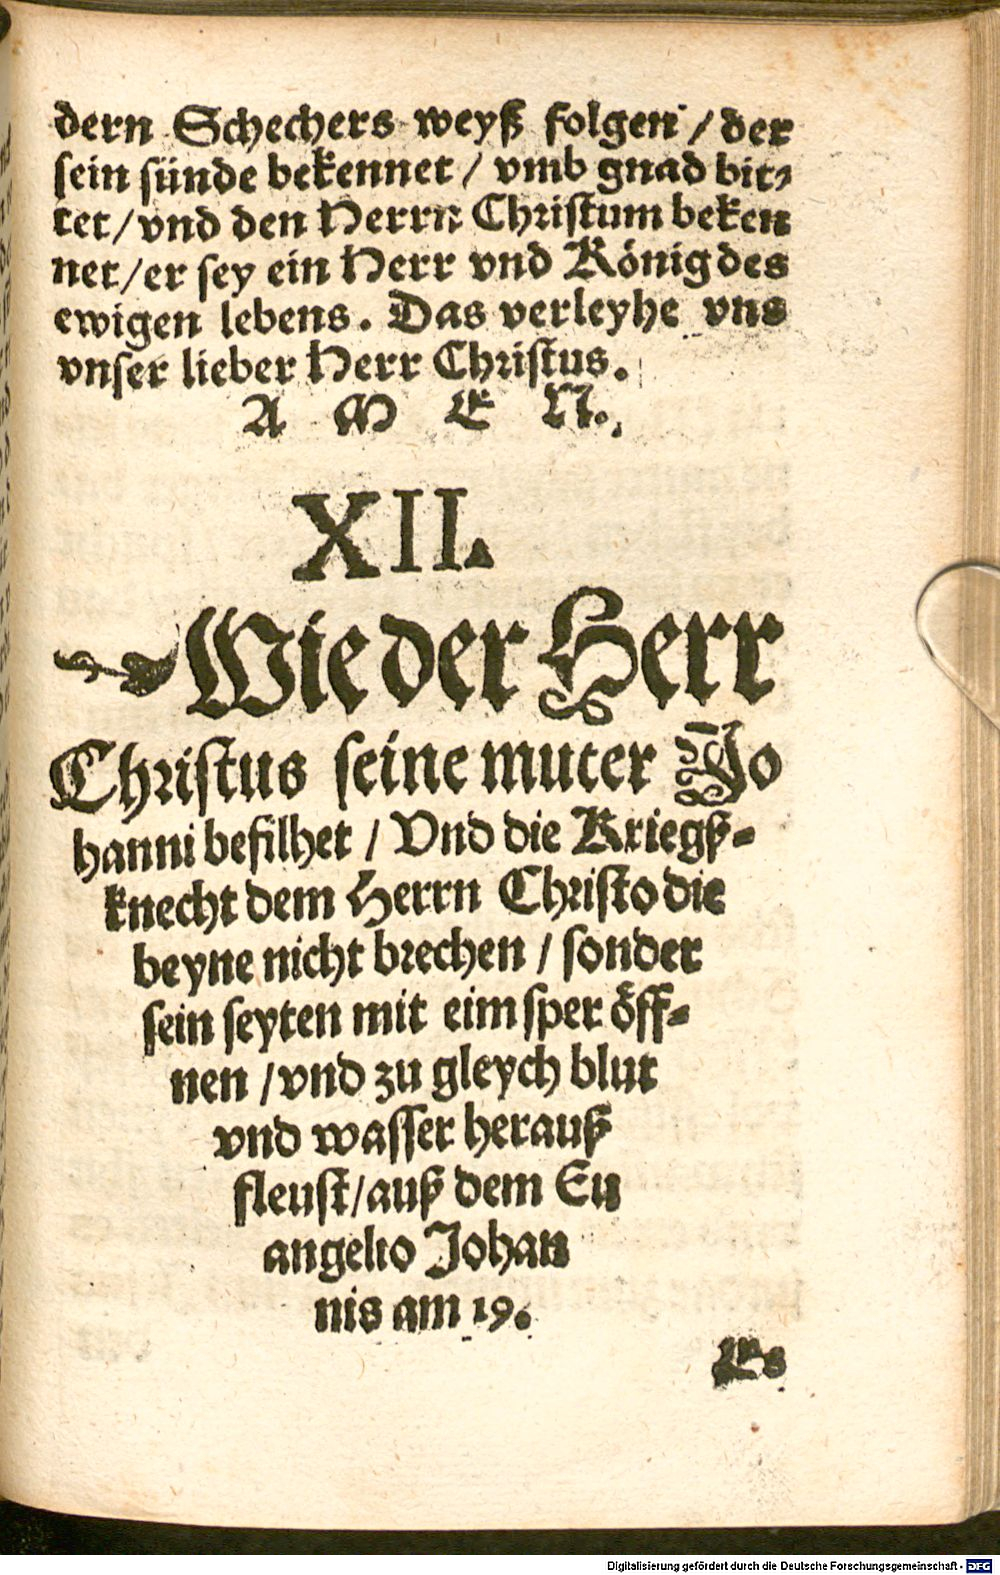 dern Schechers weyß folgen / der
sein sünde bekennet / vmb gnad bit-
tet / vnd den Herrn Christum beken
net / er sey ein Herr vnd König des
ewigen lebens. Das verleyhe vns
vnser lieber Herr Christus.
A M E N.
XII.
Wie der Herr
Christus seine muter Jo
hanni befilhet / Vnd die Kriegß-
knecht dem Herrn Christo die
beyne nicht brechen / sonder
sein seyten mit eim sper öff-
nen / vnd zu gleych blut
vnd wasser herauß
fleust / auß dem Eu
angelio Johan
nis am 19.
Es
Digitalisierung gefördert durch die Deutsche Forschungsgemeinschaft - DFG